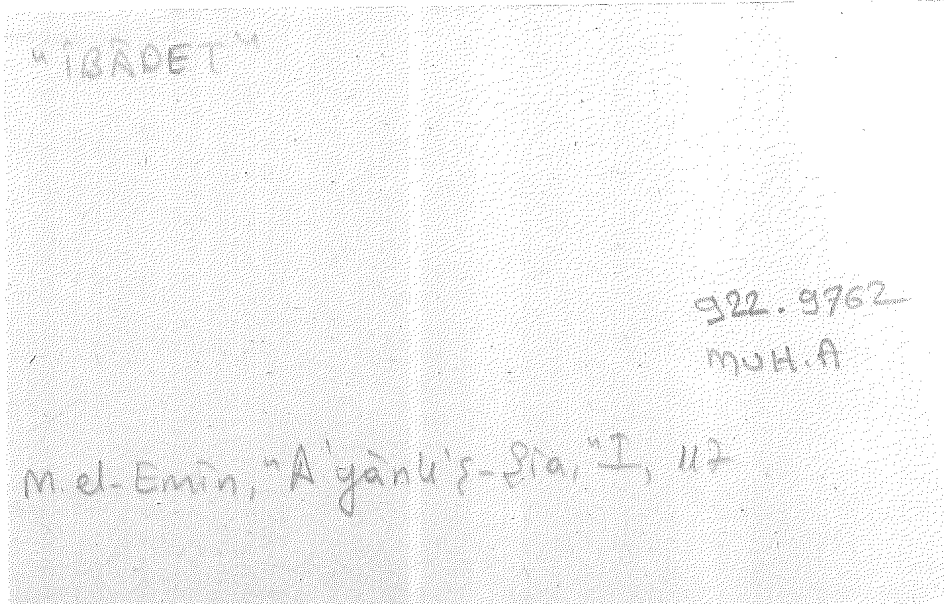 "İBÂDET"
922.9762
MUH.A
M. el-Emin, "A'yânü'ş-Şîa," I, 117